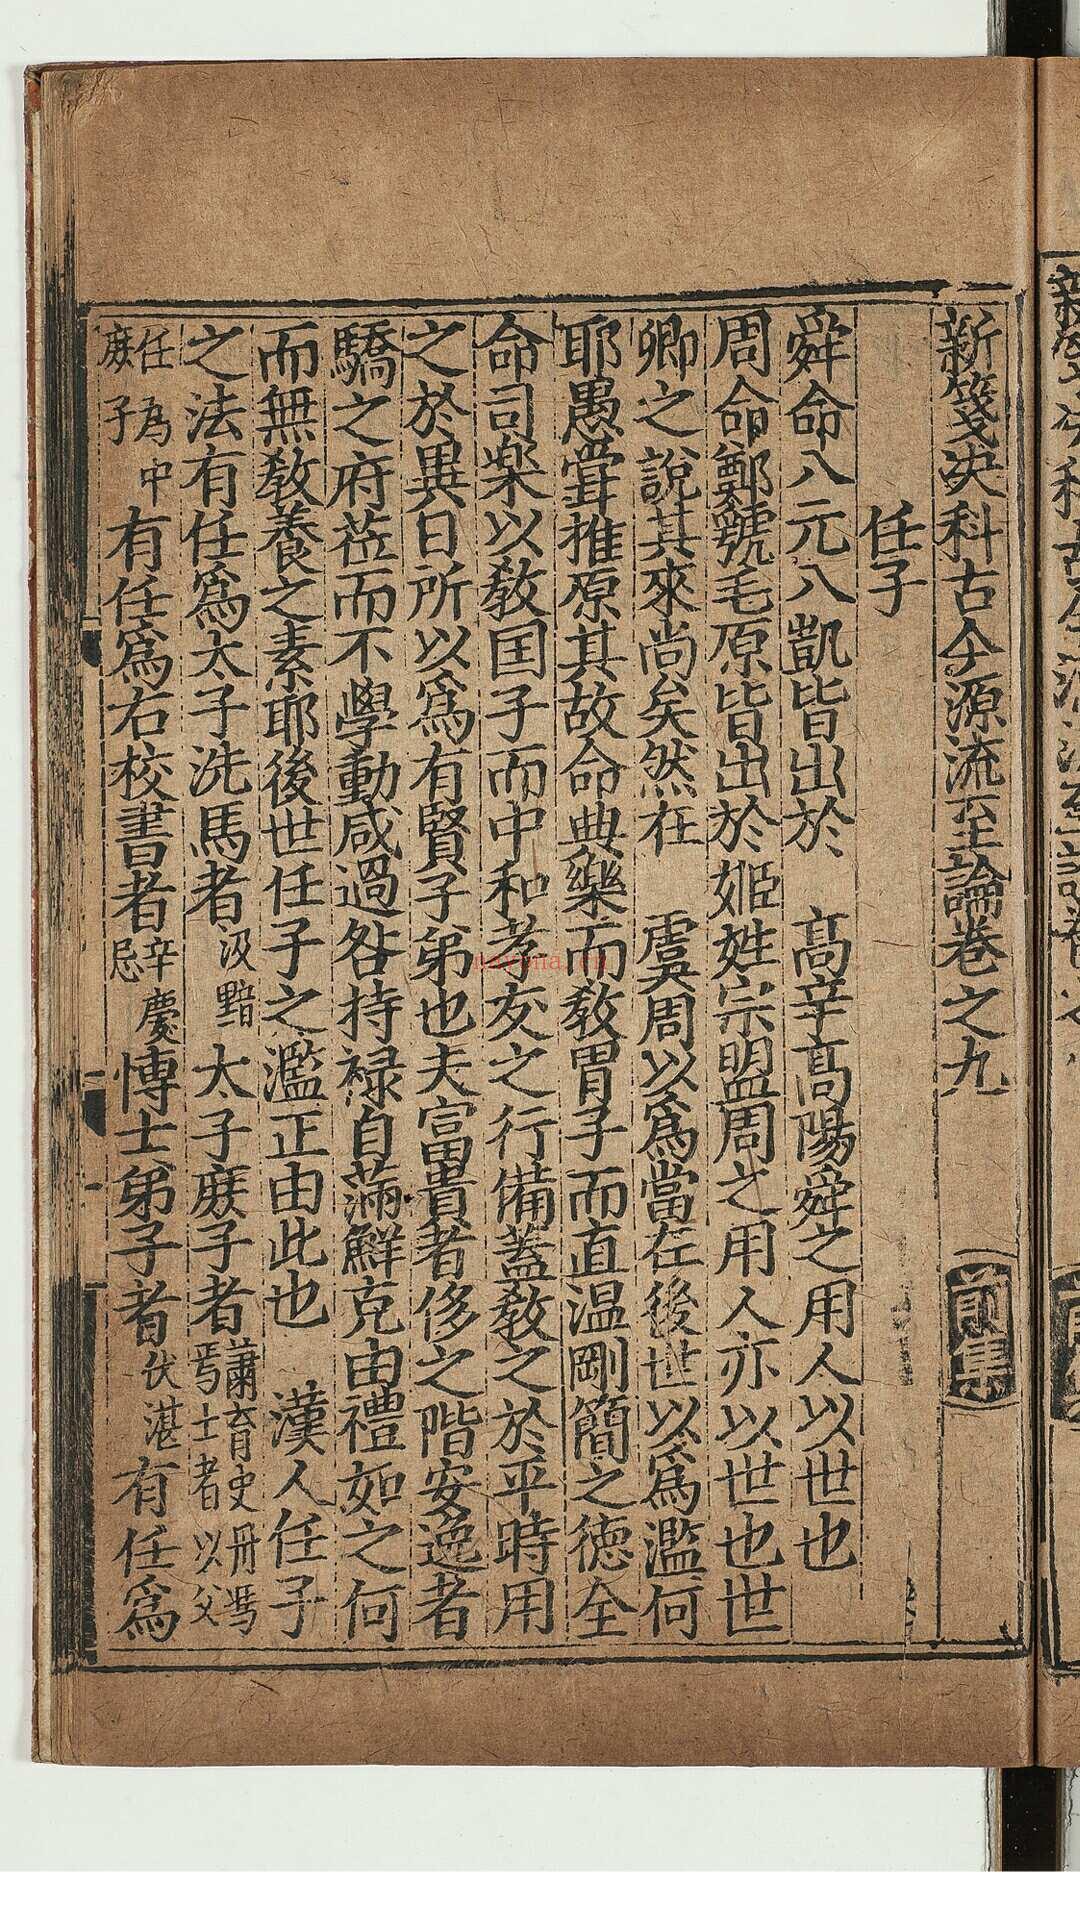 新箋决科古今源流至論卷之九 前集
任子
舜命八元八凱皆出於 高辛高陽舜之用人以世也
周命鄭虢毛原皆出於姬姓宗盟周之用人亦以世也世
卿之說其來尚矣然在 虞周以爲當在後世以爲濫何
耶愚甞推原其故命典樂而敎胄子而直温剛簡之德全
命司樂以敎国子而中和孝友之行備蓋敎之於平時用
之於異日所以爲有賢子弟也夫富貴者侈之階安逸者
驕之府莅而不學動咸過咎持禄自滿鮮克由禮如之何
而無敎養之素耶後世任子之濫正由此也 漢人任子
之法有任爲太子洗馬者汲黯太子庻子者蕭育史丹馮野士者以父
任為中庻子有任爲右校書者辛慶忌愽士弟子者伏湛有任爲